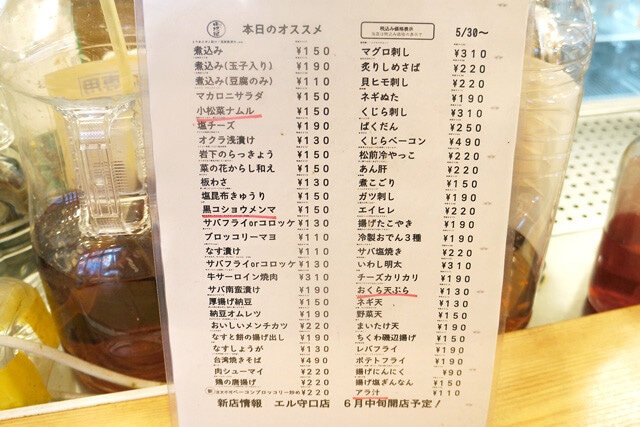 本日のオススメ
税込み価格表示
5/30〜
煮込み ¥150
煮込み(玉子入り) ¥190
煮込み(豆腐のみ) ¥110
マカロニサラダ ¥150
小松菜ナムル ¥150
塩チーズ ¥190
オクラ浅漬け ¥130
岩下のらっきょう ¥150
菜の花からし和え ¥150
板わさ ¥130
塩昆布きゅうり ¥150
黒コショウメンマ ¥150
サバフライorコロッケ ¥130
ブロッコリーマヨ ¥110
なす漬け ¥110
サバフライorコロッケ ¥130
牛サーロイン焼肉 ¥310
サバ南蛮漬け ¥190
厚揚げ納豆 ¥150
納豆オムレツ ¥190
おいしいメンチカツ ¥220
なすと餅の揚げ出し ¥190
なすしょうが ¥130
台湾焼きそば ¥490
肉シューマイ ¥220
鶏の唐揚げ ¥220
ベーコンブロッコリー炒め ¥220
マグロ刺し ¥310
炙りしめさば ¥220
貝ヒモ刺し ¥220
ネギぬた ¥190
くじら刺し ¥310
ばくだん ¥250
くじらベーコン ¥490
松前冷やっこ ¥220
あん肝 ¥220
煮こごり ¥150
ガツ刺し ¥190
エイヒレ ¥220
揚げたこやき ¥190
冷製おでん3種 ¥190
サバ塩焼き ¥220
いわし明太 ¥310
チーズカリカリ ¥190
おくら天ぷら ¥130
ネギ天 ¥130
野菜天 ¥150
まいたけ天 ¥190
ちくわ磯辺揚げ ¥150
レバフライ ¥190
ポテトフライ ¥190
揚げにんにく ¥90
揚げ塩ぎんなん ¥150
アラ汁 ¥110
新店情報 エル守口店 6月中旬開店予定！